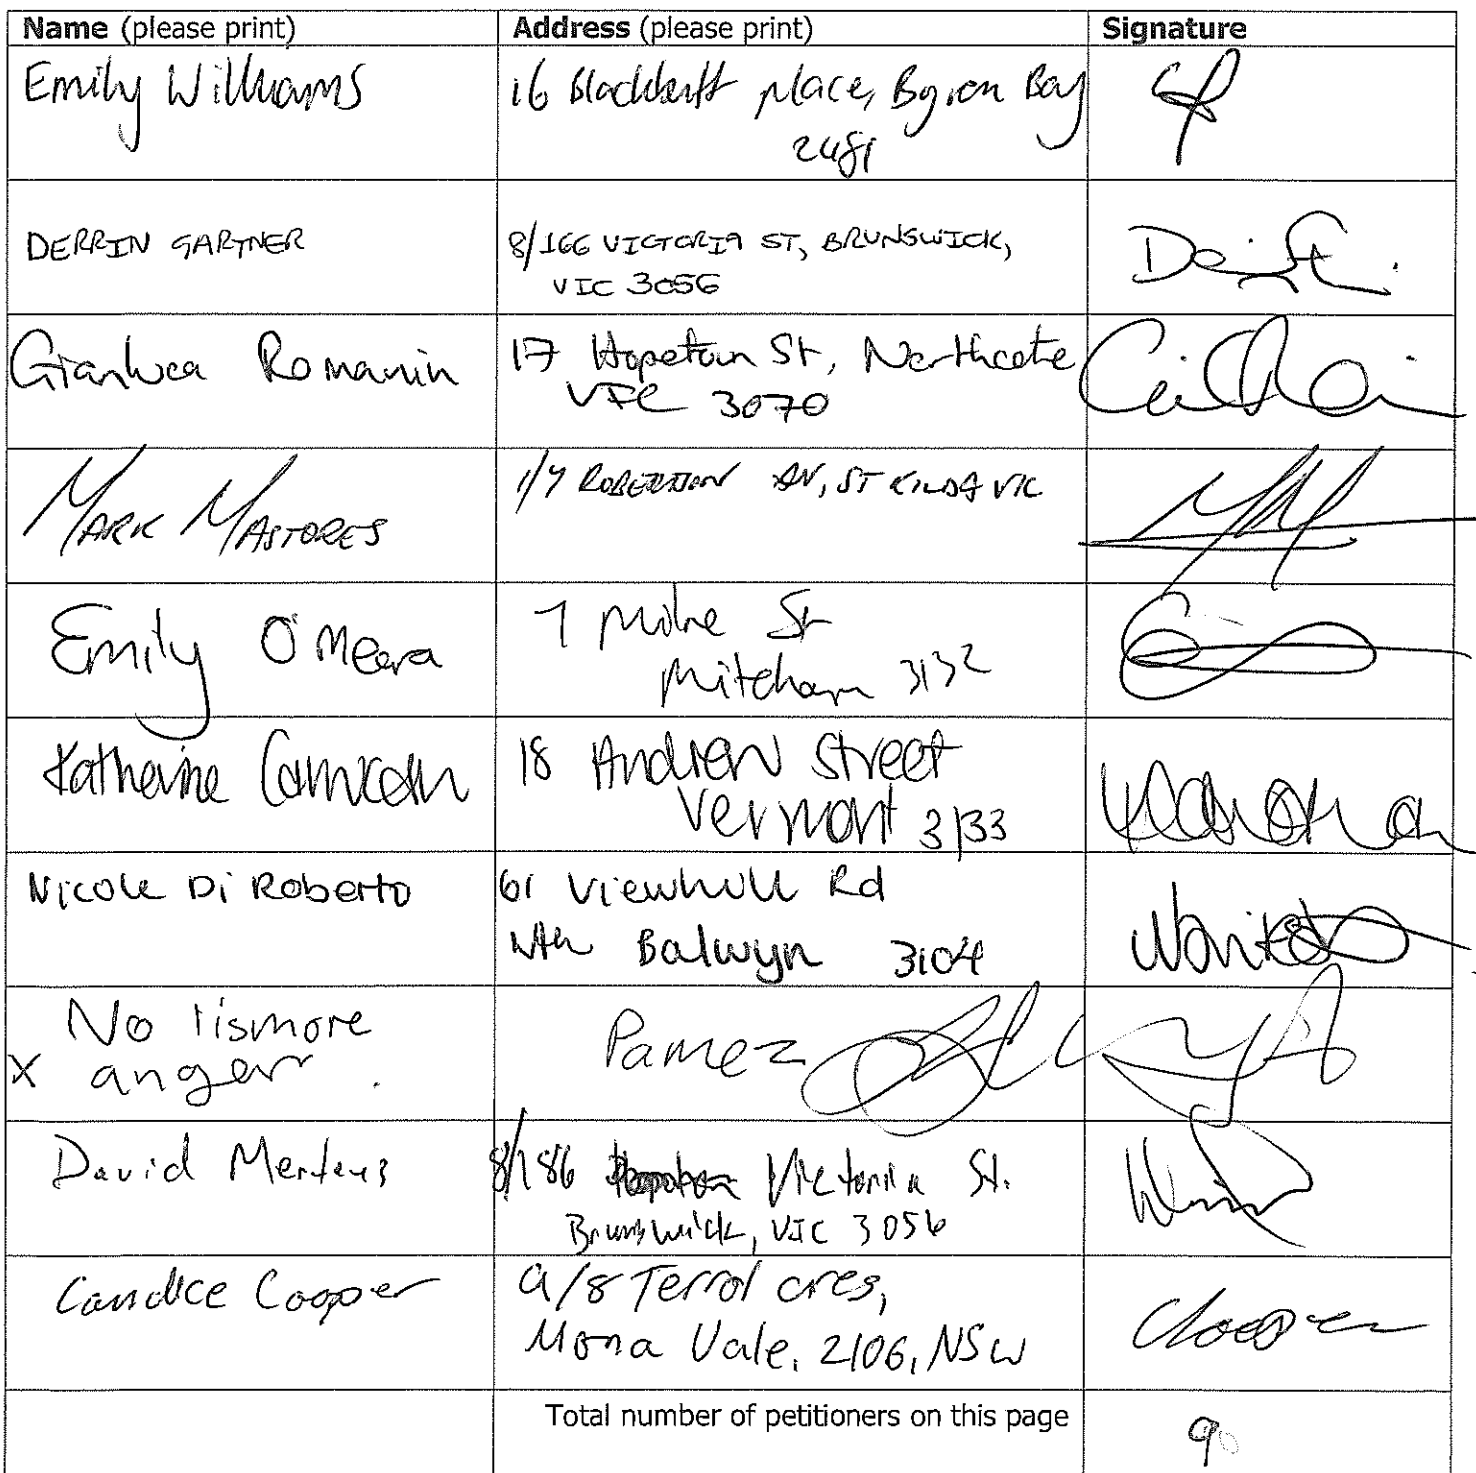 Name (please print) Address (please print) Signature
Emily Williams 16 place, Byron Bay
2481
DERRIN GARTNER 8/166 VICTORIA ST, BRUNSWICK,
VIC 3056
Gianluca Romanin 17 Hopetoun St, Northcote
VIC 3070
MARK MASTORES ROBERTSON AV, ST KILDA VIC
Emily O'Meara 7 Milne St
Mitcham 3132
Katherine 18 Andrew Street
Vermont 3133
Nicole Di Roberto 61 Viewhill Rd
Nth Balwyn 3104
No lismore
x anger.
David Mertens 8/186 Victoria St.
Brunswick, VIC 3056
Candice Cooper a/8 cres,
Mona Vale, 2106, NSW
Cooper
Total number of petitioners on this page 9